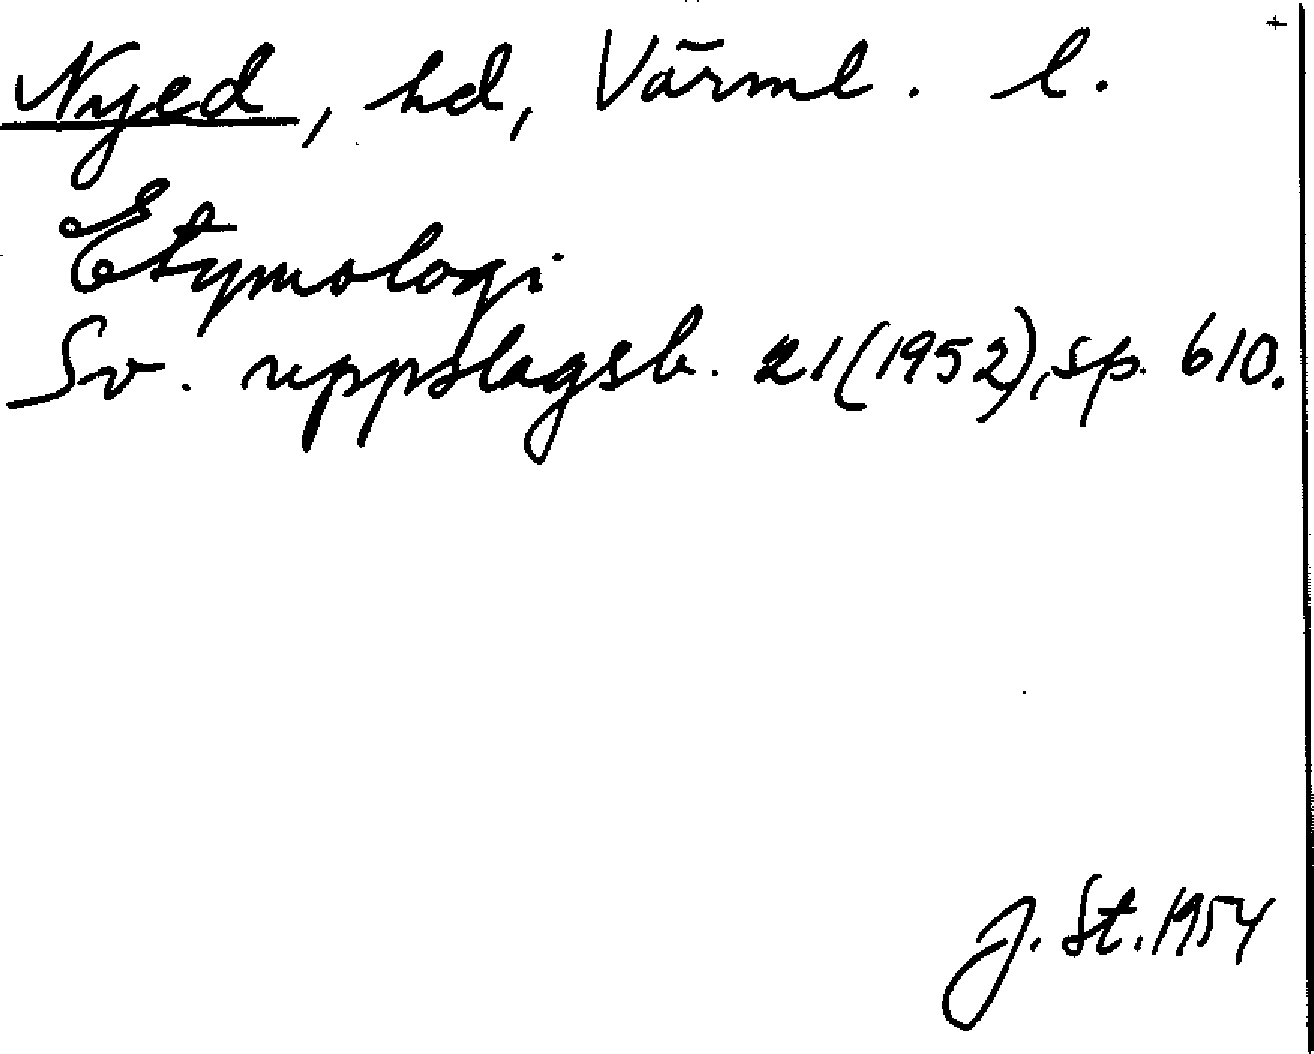 Nyed, hd, Värml. l.
Etymologi
Sv. uppslagsb. 21(1952), sp. 610.
J. St. 1954